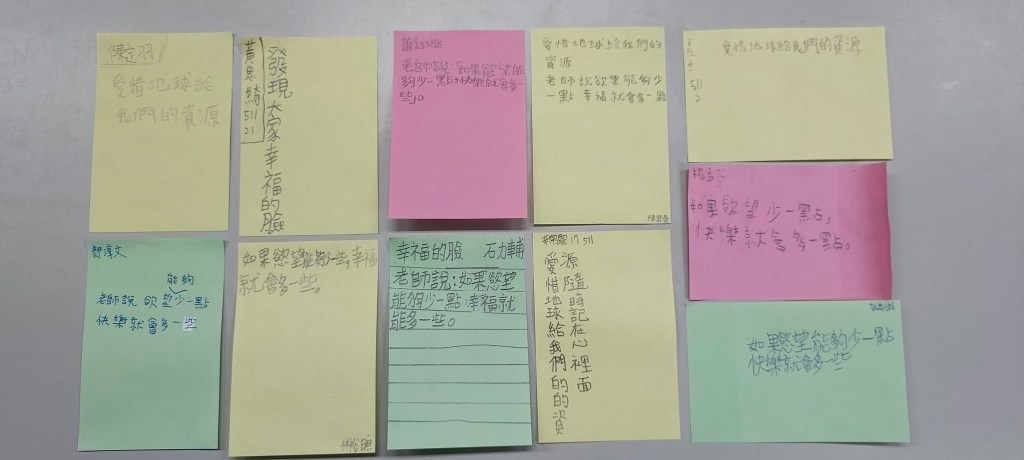 愛惜地球給
我們的資源
黃思綺
511
21
發現大家幸福的臉
老師說:如果慾望能
夠少一點,快樂就會多一
些」。
愛惜地球給我們的
資源
老師說欲望能夠少
一點 幸福就會多一點
愛惜地球給我們的資源
511
2
如果欲望少一點,
快樂就會多一點。
鄭淳文
能夠
老師說 欲望少一點
快樂就會多一些
如果慾望能夠少一些,幸福
就會多一些。
幸福的臉 石力輔
老師說:如果慾望
能夠少一點,幸福就
能多一些。
17 511
愛惜地球給我們的的資
源隨時記在心裡面
如果慾望能夠少一點
快樂就會多一些